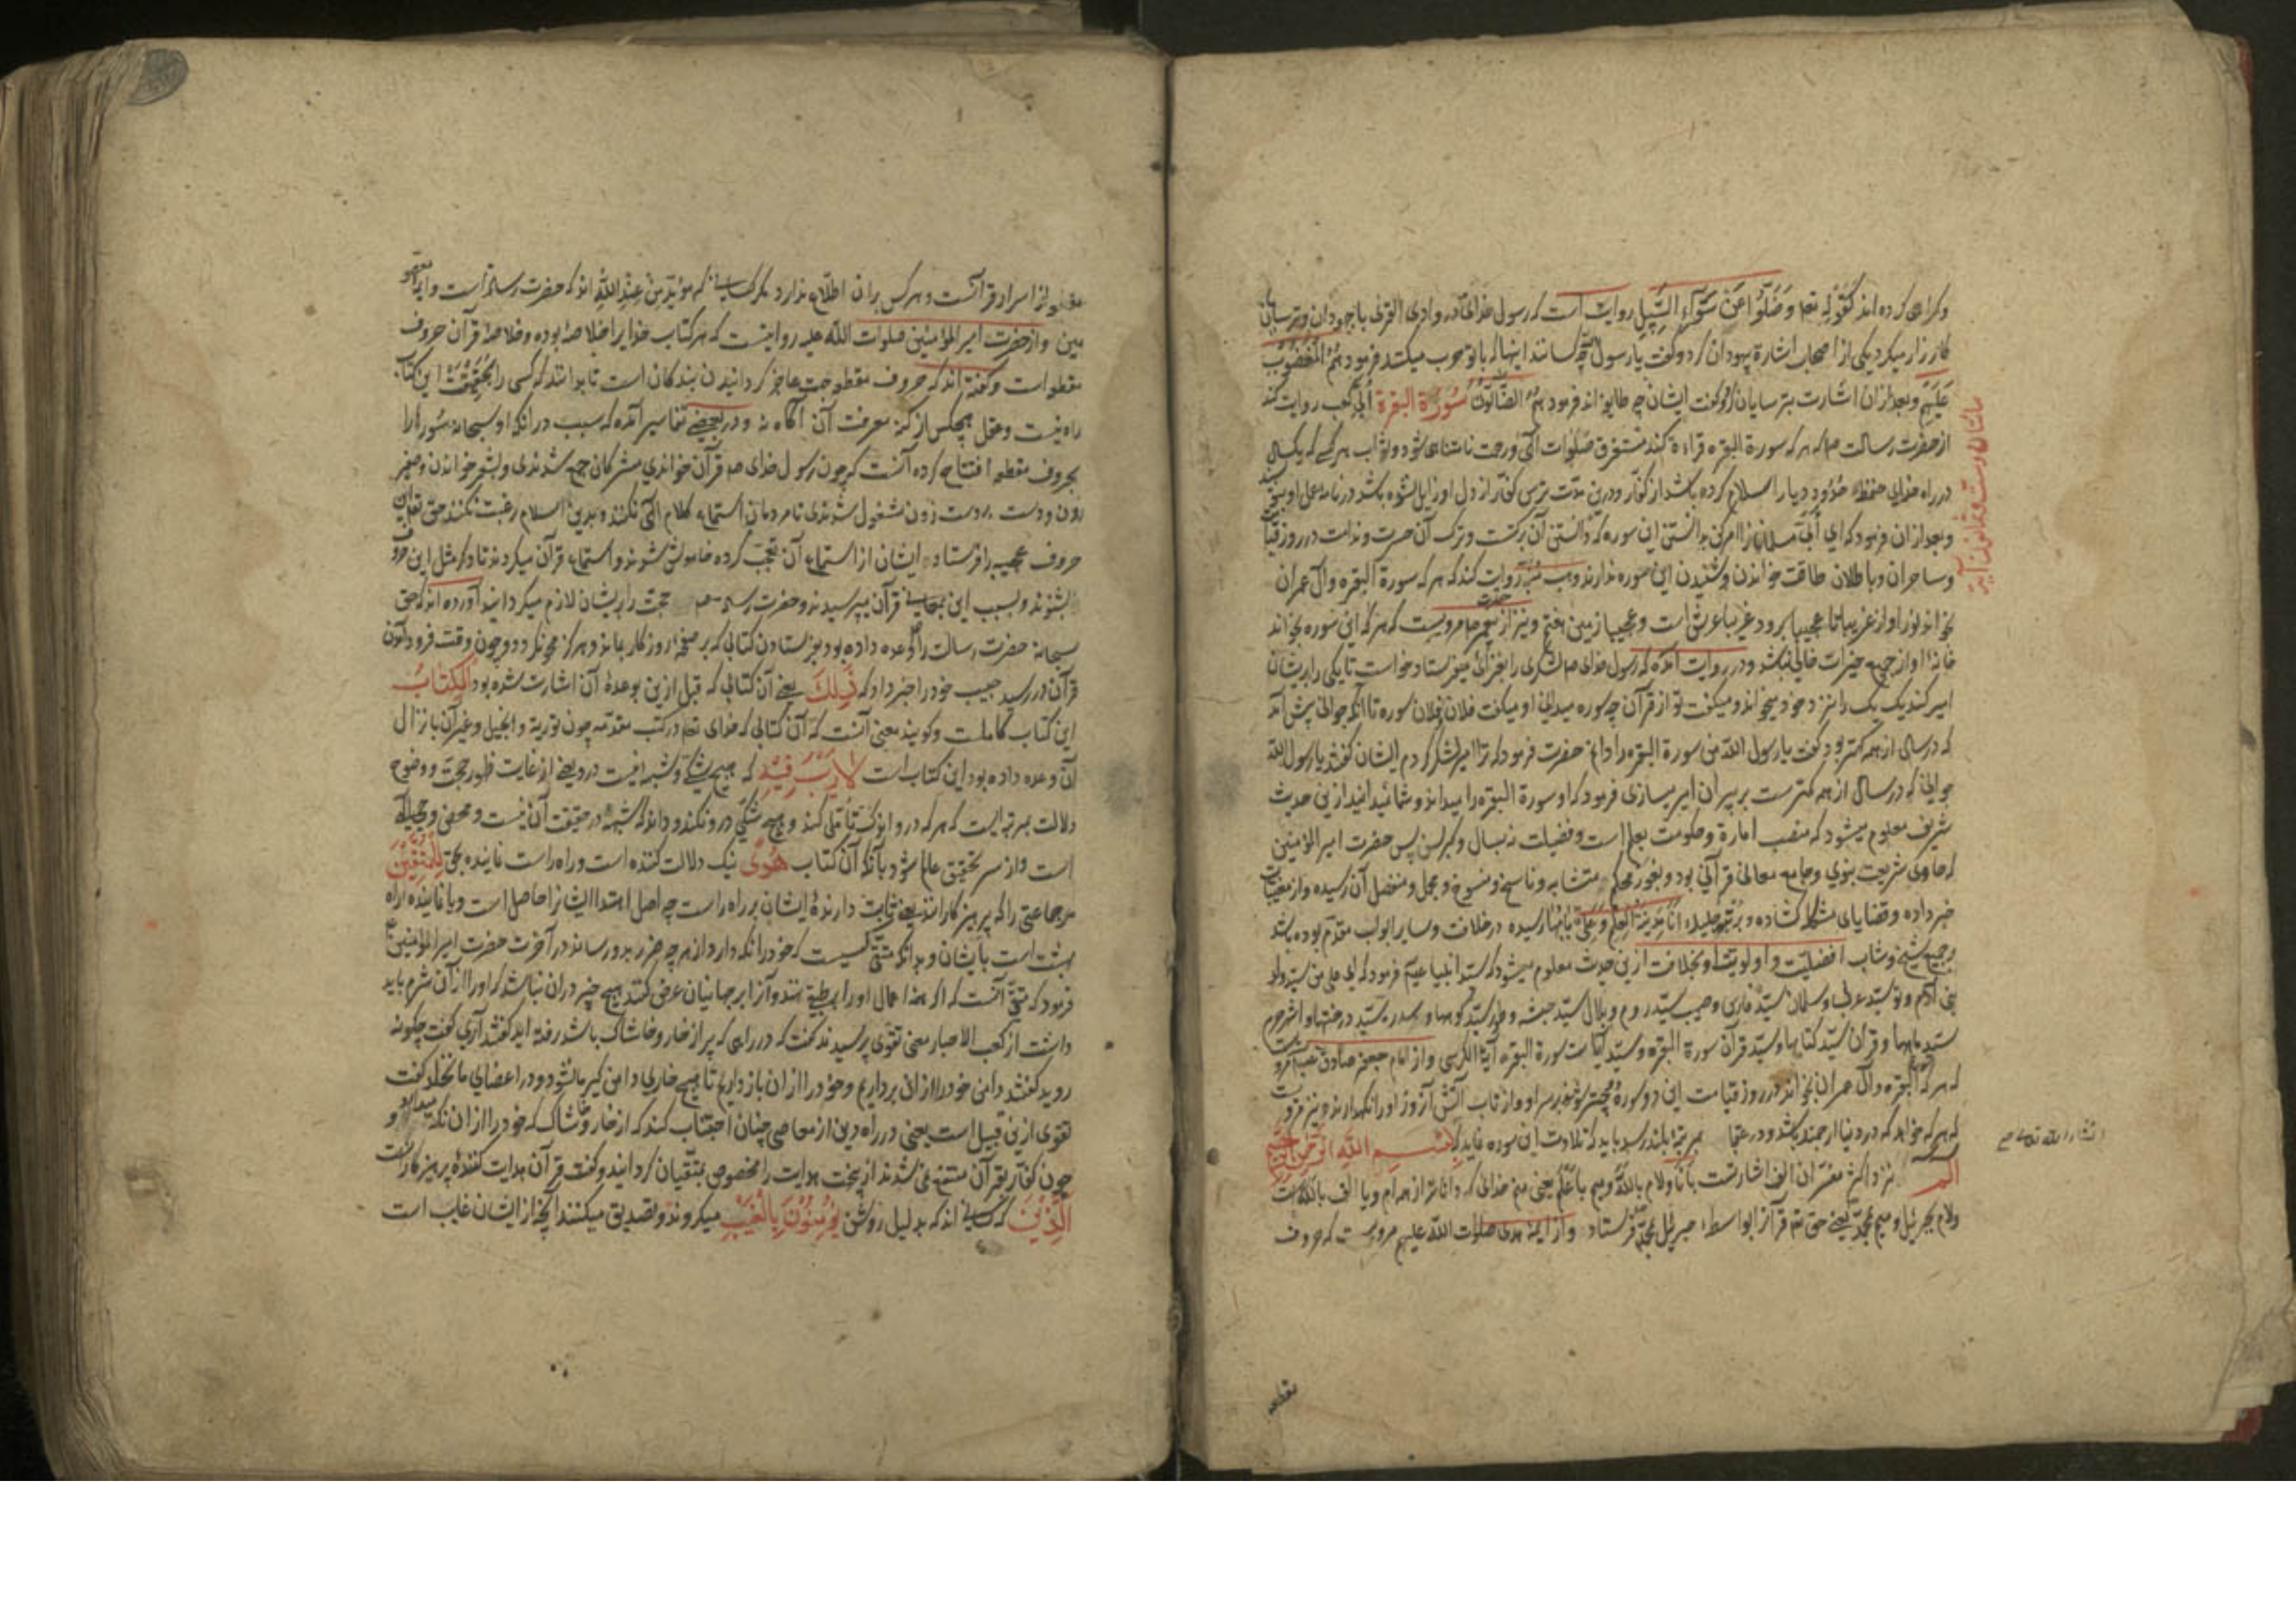 و گمراهی کرده اند کقوله تعم وَضَلُّوا عَنْ سَوَآءِ السَّبِیلِ روایت است که رسول خدای در وادی القری با جهودان و ترسایان
کارزار میکرد یکی از اصحاب اشارة بیهودان کرد و گفت یا رسول الله چه کسانند اینها که با تو حرب میکنند فرمود هُمُ الْمَغْضُوبُ
عَلَیْهِمْ و بعد از ان اشارت بترسایان کرد و گفت ایشان چه طایفه اند فرمود هُمُ الضَّالُّونَ سُورَة البقرة اُبَیّ کعب روایت کند
از حضرت رسالت صلم که هر که سورة البقره قراءة کند مستغرق صلوات الهی و رحمت نامتناهی شود و ثواب هر کسی که یکسال
در راه خدای حفظ حدود دیار اسلام کرده باشد از کفار و درین مدت ترس کفار از دل او زایل نشده باشد در نامه عمل او
و بعد از ان فرمود که ای اُبَیّ مسلمانان را امر کن بدانستن این سوره که دانستن آن برکتست و ترک آن حسرت و ندامت در روز
و ساحران و باطلان طاقت خواندن و شنیدن این سوره ندارند و روایت کند که هر که سورة البقره و آل عمران
بخواند نور او از غریبا تا عجیبا برود غریبا عرش است و عجیبا زمین هفتم و نیز از حضرت مرویست که هر که این سوره بخواند
خانهٔ او از جمیع خیرات خالی نباشد و در روایت آمده که رسول خدای صلم لشکری را میفرستاد خواست تا یکی را بر ایشان
امیر کند یک یک را نزد خود میخواند و میگفت تو از قرآن چه سوره میدانی او میگفت فلان و فلان سوره تا آنکه جوانی پیش آمد
که در سال از همه کمتر بود گفت یا رسول الله من سورة البقره را دانم حضرت فرمود که ترا امیر لشکر کردم ایشان گفتند یا رسول الله
جوانی که در سال از همه کمترست بر پیران امیر میسازی فرمود که او سورة البقره را میداند و شما نمیدانید ازین حدیث
شریف معلوم میشود که منصب امارة و حکومت بعلم است و فضیلت نه بسال و کبر سن پس حضرت امیر المؤمنین
که حاوی شریعت نبوی و جامع معانی قرآنی بود و بغور محکم و متشابه و ناسخ و منسوخ و مجمل و مفصل آن رسیده و از
خبر داده و قضایای مشکل گشاده و بمرتبه جلیلهٔ اَنَا مَدِینَةُ الْعِلْمِ وَعَلِیٌّ بَابُهَا رسیده در خلافت و سایر ابواب مقدم بوده باشد
جمیع شیخ و شاب افضلیت و اولویت او بخلافت ازین حدیث معلوم میشود که سید انبیا فرمود که ای علی من سید ولد
بنی آدم و تو سید عرب و سلمان سید فارس و صهیب سید روم و بلال سید حبشه و طور سید کوهها و سدره سید درختها و اشهر حرم
سید ماهها و قرآن سید کتابها و سید قرآن سورة البقره و سید آیات سورة البقره آیة الکرسی و از امام جعفر صادق
که هر که البقره و آل عمران بخواند در روز قیامت این دو سوره بر سر او و از تاب آتش آنروز او را نگهدارند و نیز
که هر که خواهد که در دنیا ارجمند باشد و در عقبا بمرتبهٔ بلند رسد باید که تلاوت این سوره نماید بِسْمِ اللَّهِ الرَّحْمٰنِ الرَّحِیمِ
الم نزد اکثر مفسران الف اشارتست بانا و لام بالله و میم باعلم یعنی منم خدائی که داناترم از همه ام و یا الف بالله است
و لام بجبرئیل و میم بمحمد یعنی حق تعم قرآنرا بواسطهٔ جبرئیل بمحمد فرستاد و از ایمهٔ هدی صلوات الله علیهم مرویست که حروف
مائتان و ست و ثمانون آیة
انشاء الله تعالی
مقطعه
مقطعه از اسرار قرآنست و هر کس بران اطلاع ندارد مگر کسانی که مؤید من عند الله اند که حضرت رسالت است و ایمهٔ
مین و از حضرت امیر المؤمنین صلوات الله علیه روایتست که هر کتاب خدایرا خلاصهٔ بوده و خلاصهٔ قرآن حروف
مقطعه است و گفته اند که حروف مقطعه جهت عاجز گردانیدن بندکان است تا بدانند که کسی را بحقیقت این کتاب
راه نیست و عقل هیچکس از کنه معرفت آن آگاه نه و در بعضی تفاسیر آمده که سبب در آنکه او سبحانه سُوَر را
بحروف مقطعه افتتاح کرده آنست که چون رسول خدای صلم قرآن خواندی مشرکان جمع شدندی و بشعر خواندن و صفیر
زدن و دست بر دست زدن مشغول شدندی تا مردمان استماع کلام الهی نکنند و بدین اسلام رغبت نکنند حق تعم این
حروف عجیبه را فرستاد ایشان از استماع آن تعجب کرده خاموش شوند و استماع قرآن میکردند تا دگر مثل این حروف
بشنوند و بسبب این معانی قرآن میپرسیدند و حضرت رسالت صلم حجت را بر ایشان لازم میگردانید آورده اند که حق
سبحانه حضرت رسالت را وعده داده بود بفرستادن کتابی که بر صفحهٔ روزگار بماند و هرگز محو نگردد و چون وقت فرود آمدن
قرآن در رسید حبیب خود را خبر داد که ذٰلِكَ یعنی آن کتابی که قبل ازین بوعدهٔ آن اشارت شده بود الْكِتَابُ
این کتاب کاملست و گویند معنی آنست که آن کتابی که خدای تعم در کتب مقدمه چون توریة و انجیل و غیر آن بانزال
آن وعده داده بود این کتاب است لَا رَیْبَ فِیْهِ که هیچ شکی و شبهه نیست درو یعنی از غایت ظهور حجت و وضوح
دلالت بمرتبه ایست که هر که درو اندک تأملی کند هیچ شکی درو نکند و داند که شبهه در حقیقت آن نیست و
است و از سر تحقیق عالم شود بآنکه آن کتاب هُدًی نیک دلالت کننده است و راه راست نماینده بحق لِلْمُتَّقِیْنَ
مر جماعتی را که پرهیزکارانند یعنی ثابت دارندهٔ ایشان بر راه راست چه اصل اهتدا ایشانرا حاصل است و یا نماینده راه
بهشت است بایشان و بدانکه متقی کسیست که خود را نگه دارد از هر چه ضرر بدو رساند در آخرت حضرت امیر المؤمنین
فرمود که متقی آنست که اگر همه اعمال او را بر طبقی نهند و آنرا بر جهانیان عرض کنند هیچ چیز در ان نباشد که او را از آن شرم باید
داشت از کعب الاحبار معنی تقوی پرسیدند گفت که در راهی که پر از خار و خاشاک باشد رفته اید گفتند آری گفت چگونه
روید گفتند دامن خود را از ان برداریم و خود را از ان باز داریم تا هیچ خاری دامن گیر ما نشود و در اعضای ما نخلد گفت
تقوی ازین قبیل است یعنی در راه دین از معاصی چنان اجتناب کند که از خار و خاشاک که خود را از ان نگه میدارد و
چون کفار بقرآن منتفع نمی شدند ازین جهت هدایت را مخصوص بمتقیان گردانید و گفت قرآن هدایت کنندهٔ پرهیزکارانست
الَّذِیْنَ کسانی اند که بدلیل روشن یُؤْمِنُوْنَ بِالْغَیْبِ میگروند و تصدیق میکنند آنچه از ایشان غایب است